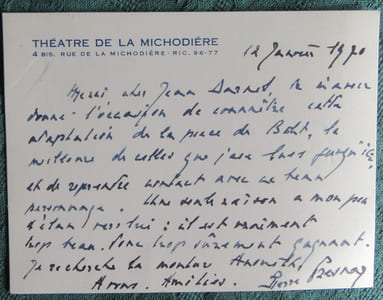 THÉATRE DE LA MICHODIÈRE
4 BIS, RUE DE LA MICHODIÈRE - RIC. 96-77
12 Janvier 1970
Merci cher Jean Darnel, de m'avoir
donné l'occasion de connaître cette
adaptation de la pièce de Bolt, la
meilleure de celles que j'aie lues jusqu'ici
et de reprendre contact avec ce beau
personnage. Une seule raison a mon peu
d'élan vers lui : il est vraiment
trop beau. Donc trop sûrement gagnant.
Je recherche la moindre
Amitiés. Pierre Fresnay